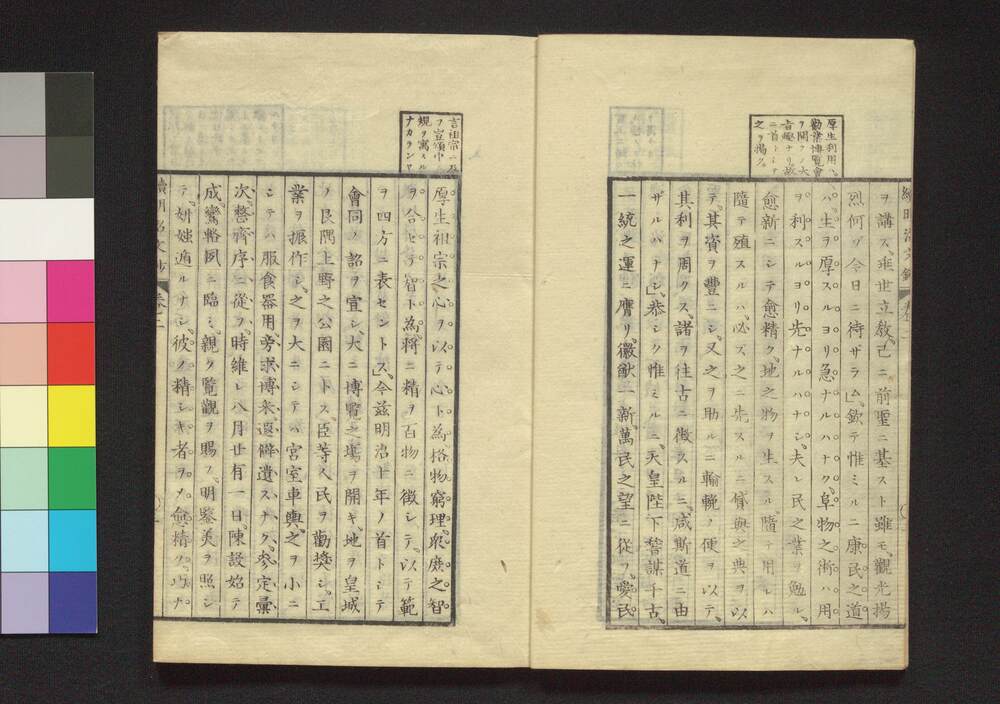 厚生利用ハ
勸業博覽會
ヲ開クノ大
旨趣ナリ故
ニ首トシテ
之ヲ揭ク
ヲ講ス、垂世立敎、己ニ前聖ニ基スト雖モ、觀光揚
烈何ゾ今日ニ待ザラム」欽テ惟ミルニ康民之道
ハ、生ヲ厚スルヨリ急ナルハナク、阜物之術ハ用
ヲ利スルヨリ先ナルハナシ、夫レ民之業ヲ勉レ、
愈新ニシテ愈精ク、地之物ヲ生スル、隨テ用レハ
隨テ殖スルハ、必ズ之ニ先スルニ貸與之典ヲ以
テ、其資ヲ豐ニシ、又之ヲ助ルニ輪輓ノ便ヲ以テ、
其利ヲ周クス、諸ヲ往古ニ徵スルニ、咸斯道ニ由
ザルハナシ」恭シク惟ミルニ、天皇陛下、聖謀千古、
一統之運ニ膺リ、徽猷一新、萬民之望ニ從フ、愛民
言祖宗ニ及
ヲ宣頌中
規ヲ寓スル
ナカランヤ
厚生祖宗之心ヲ以テ心ト為、格物窮理、衆庶之智
ヲ合セテ智ト為、將ニ精ヲ百物ニ徵シテ、以テ範
ヲ四方ニ表セントス」今茲明治十年ノ首トシテ
會同ノ詔ヲ宣シ、大ニ博覽之塲ヲ開キ、地ヲ皇城
ノ艮隅上野之公園ニトス、臣等人民ヲ勸獎シ、工
業ヲ振作シ、之ヲ大ニシテハ宮室車輿、之ヲ小ニ
シテハ服食器用、旁求博釆、遐僻遺スナク、參定彙
次、整齊序ニ從フ、時維レ八月廿有一日、陳設始テ
成、鸞輅夙ニ臨ミ、親ク覽觀ヲ賜フ、明鑒美ヲ照シ
テ、妍媸遁ルナシ、彼ノ精シキ者ヲメ愈精ク、巧ナ
續明治文鈔 卷二